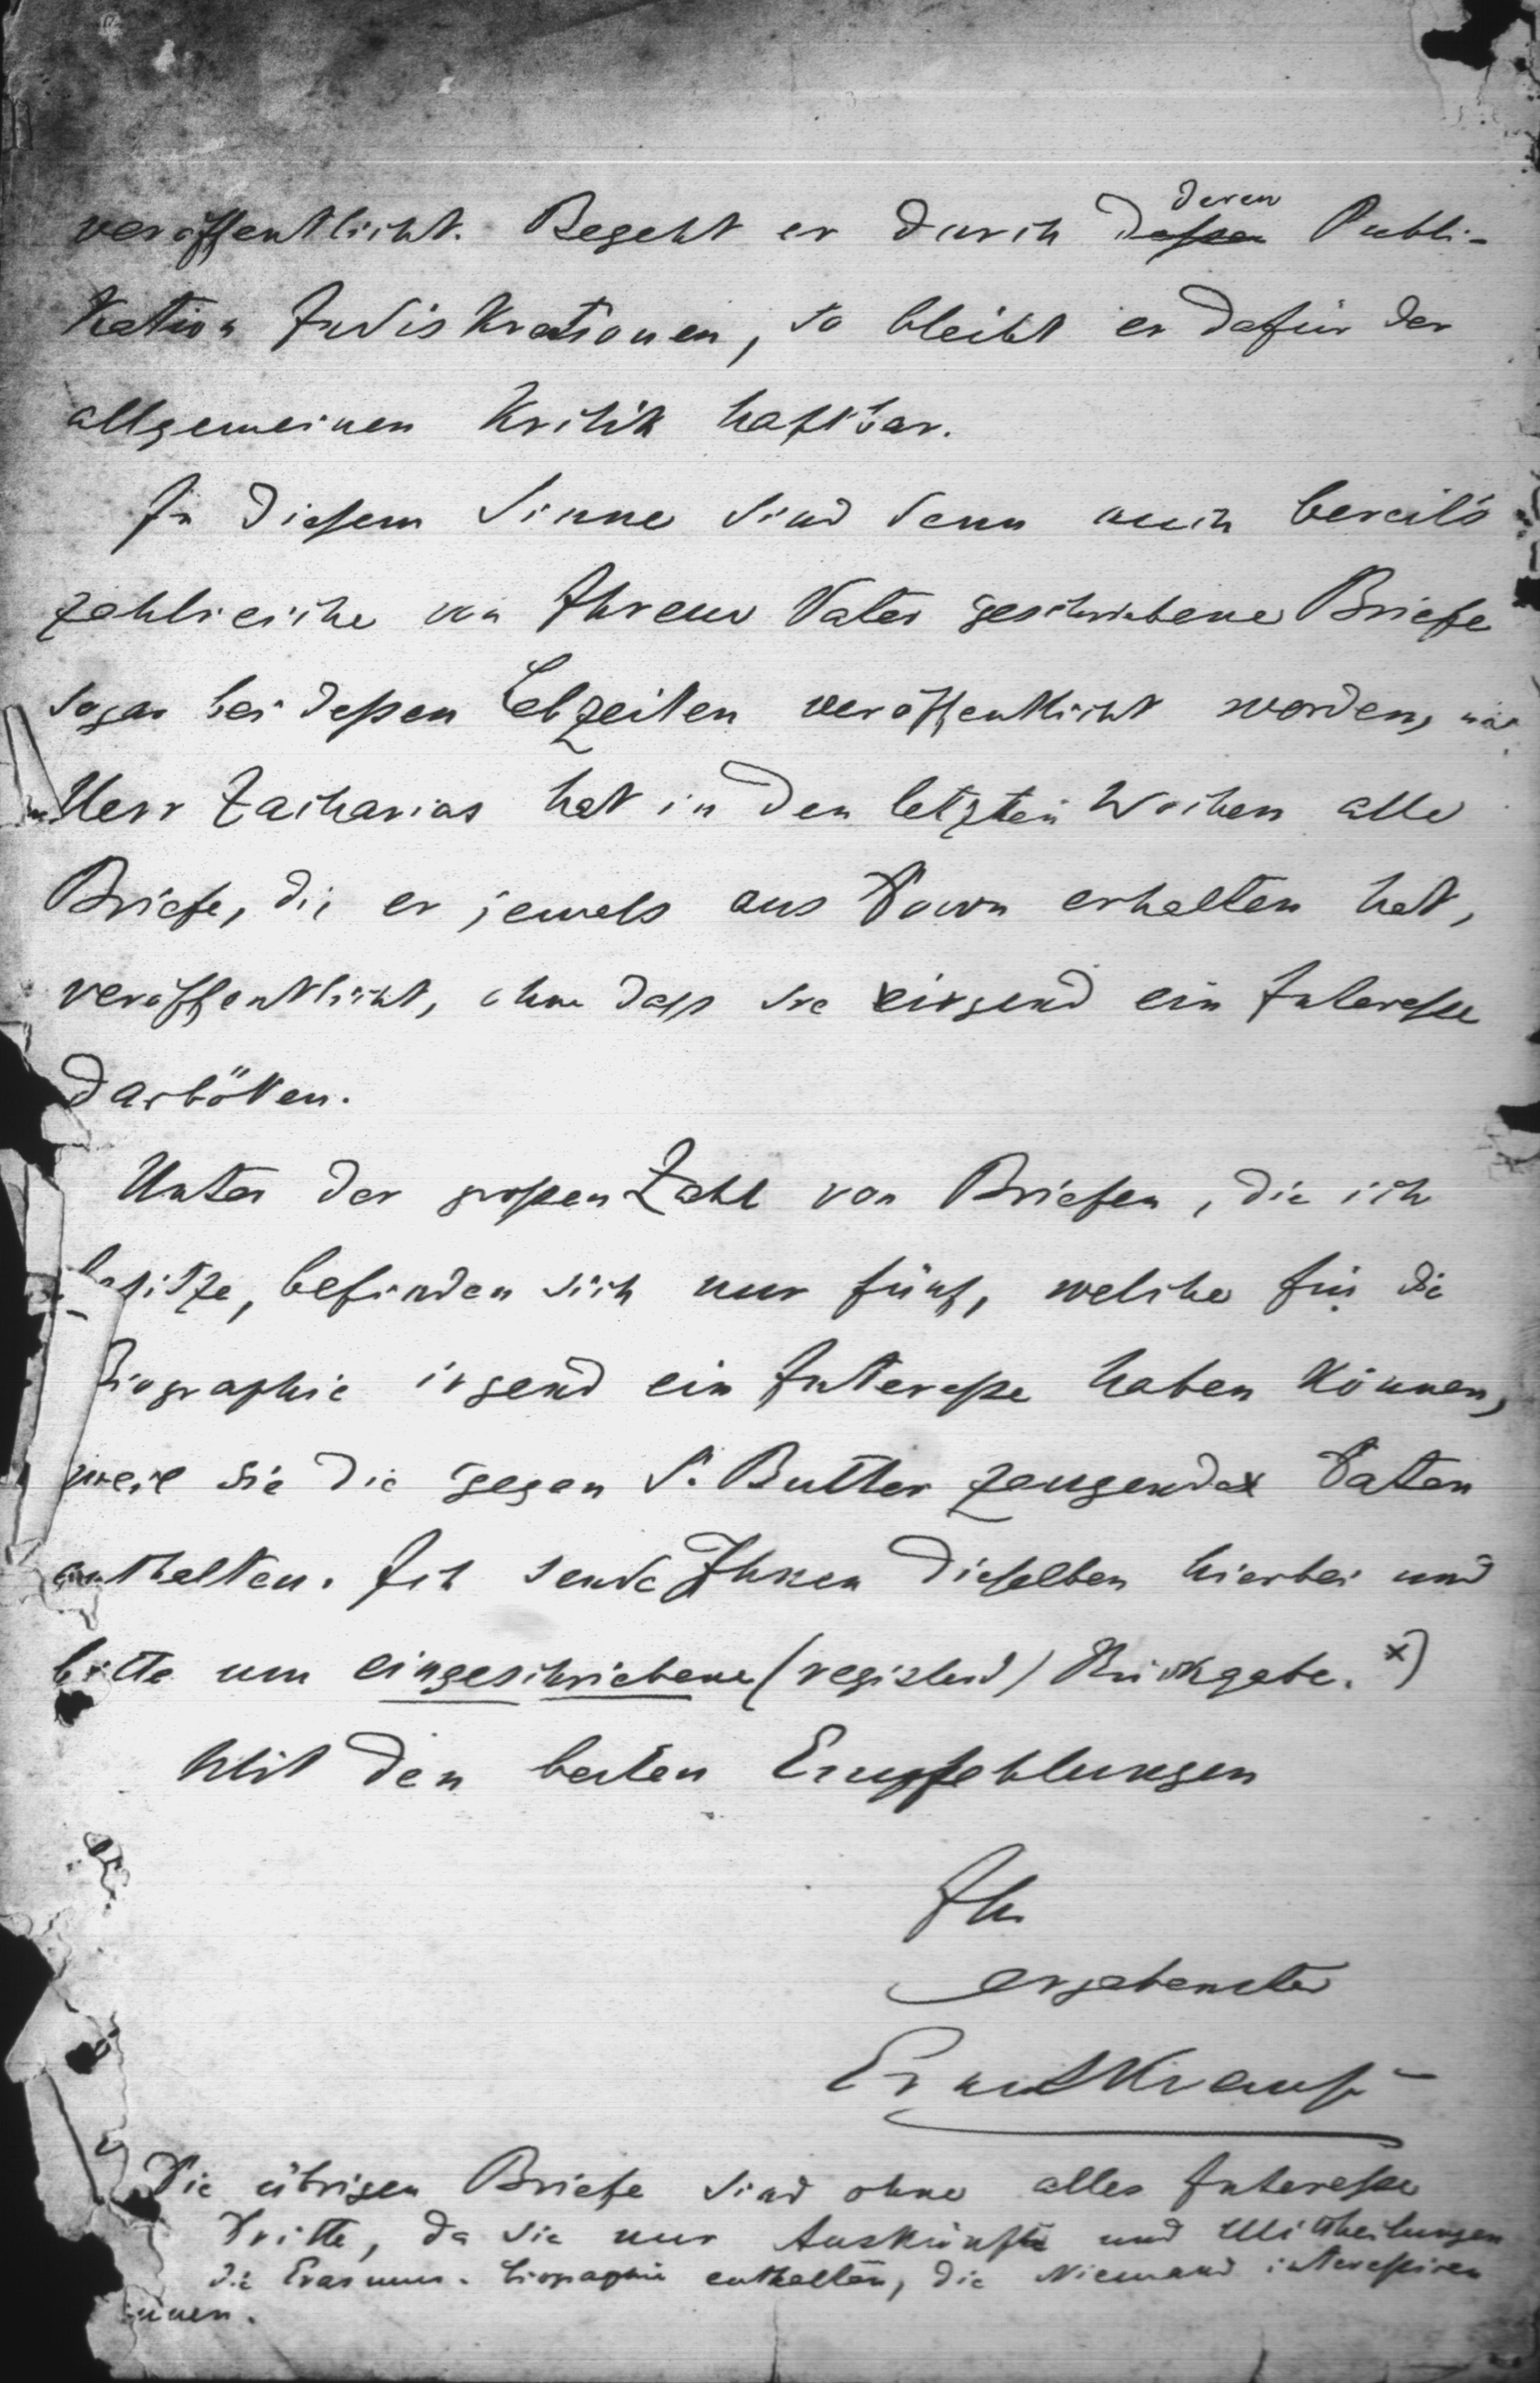 veröffentlicht. Begeht er durch deren Publi-
kation Indiskretionen, so bleibt er dafür der
allgemeinen Kritik haftbar.
In diesem Sinne sind denn auch bereits
zahlreiche von Ihrem Vater geschriebene Briefe
sogar bei dessen Lebzeiten veröffentlicht worden,
Herr Zacharias hat in den letzten Wochen alle
Briefe, die er jemals aus Down erhalten hat,
veröffentlicht, ohne dass sie irgend ein Interesse
darböten.
Unter der grossen Zahl von Briefen, die ich
besitze, befinden sich nur fünf, welche für die
Biographie irgend ein Interesse haben können,
weil sie die gegen S. Butler zeugenden Daten
enthalten. Ich sende Ihnen dieselben hierbei und
bitte um eingeschriebene (registerd) Rückgabe. x)
Mit den besten Empfehlungen
Ihr
ergebenster
Ernst Krause
Die übrigen Briefe sind ohne alles Interesse
Dritte, da sie nur Auskünfte und Mittheilungen
die Erasmus-Biographie enthalten, die Niemand interessiren